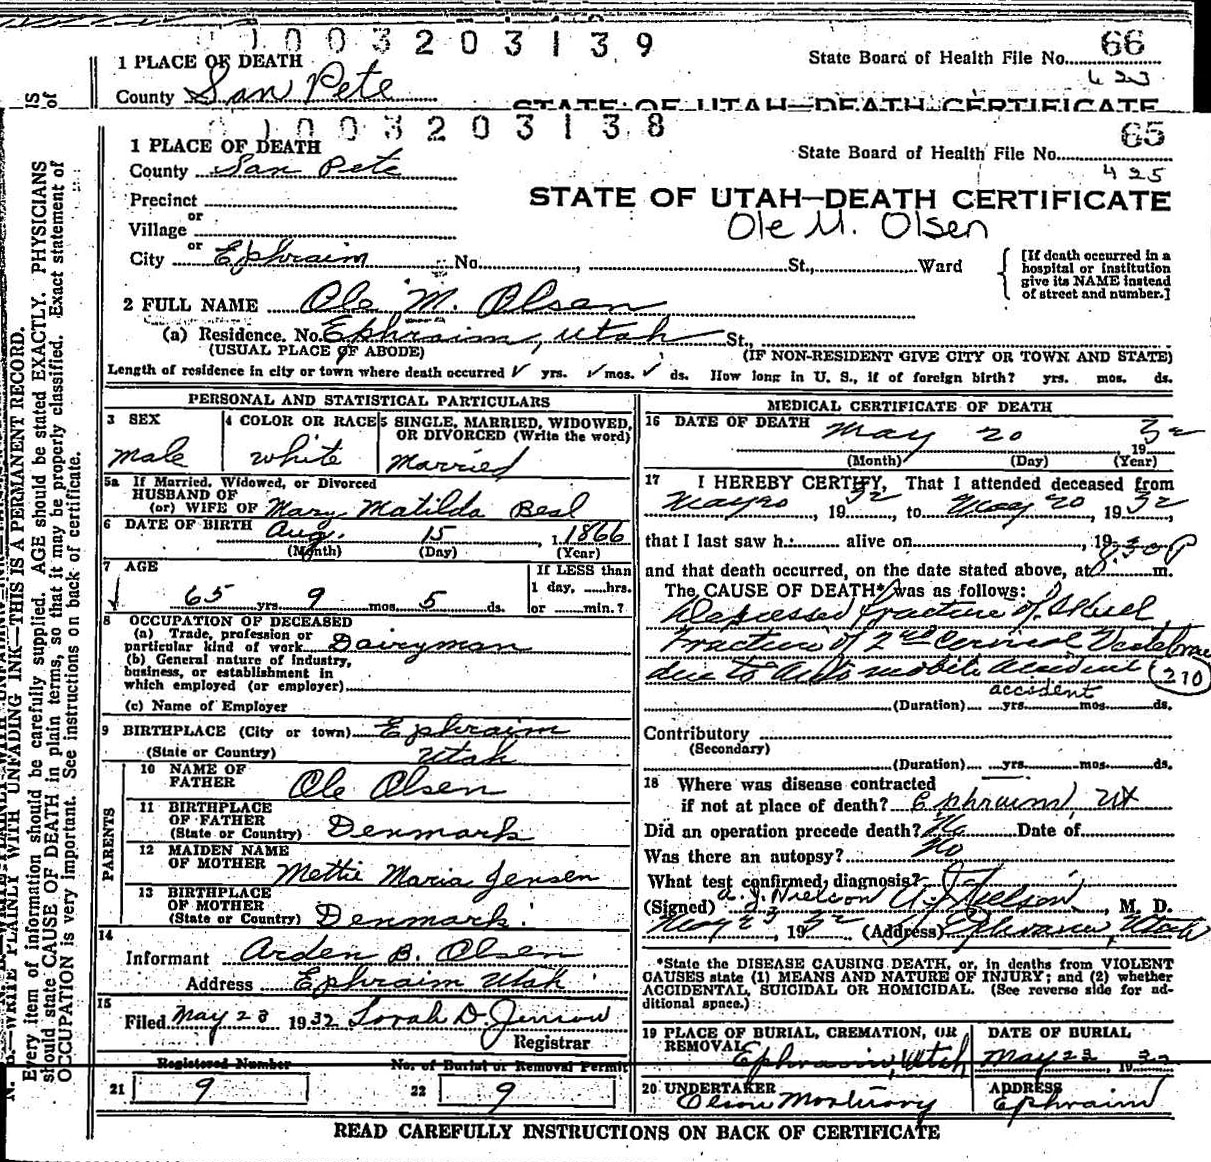 0 1 0 0 3 2 0 3 1 3 9
66
1 PLACE OF DEATH
State Board of Health File No.
423
County San Pete
STATE OF UTAH—DEATH CERTIFICATE
0 1 0 0 3 2 0 3 1 3 8
65
1 PLACE OF DEATH
State Board of Health File No.
425
County San Pete
STATE OF UTAH—DEATH CERTIFICATE
Precinct
Ole M. Olsen
or
Village
or
City Ephraim No. , St., Ward
[If death occurred in a
hospital or institution
give its NAME instead
of street and number.]
2 FULL NAME Ole M. Olsen
(a) Residence. No. Ephraim, Utah St.,
(USUAL PLACE OF ABODE) (IF NON-RESIDENT GIVE CITY OR TOWN AND STATE)
Length of residence in city or town where death occurred ✓ yrs. ✓ mos. ✓ ds. How long in U. S., if of foreign birth? yrs. mos. ds.
PERSONAL AND STATISTICAL PARTICULARS
3 SEX
male
4 COLOR OR RACE
white
5 SINGLE, MARRIED, WIDOWED,
OR DIVORCED (Write the word)
Married
5a If Married, Widowed, or Divorced
HUSBAND OF
(or) WIFE OF Mary Matilda Beal
6 DATE OF BIRTH Aug. 15 , 1866
(Month) (Day) (Year)
7 AGE
65 yrs. 9 mos. 5 ds.
If LESS than
1 day, hrs.
or min.?
8 OCCUPATION OF DECEASED
(a) Trade, profession or
particular kind of work Dairyman
(b) General nature of industry,
business, or establishment in
which employed (or employer)
(c) Name of Employer
9 BIRTHPLACE (City or town) Ephraim
(State or Country) Utah
PARENTS
10 NAME OF
FATHER Ole Olsen
11 BIRTHPLACE
OF FATHER
(State or Country) Denmark
12 MAIDEN NAME
OF MOTHER Mettie Maria Jensen
13 BIRTHPLACE
OF MOTHER
(State or Country) Denmark.
14
Informant Arden B. Olsen
Address Ephraim Utah
15
Filed May 23 1932 Sorah D. Jenson
Registrar
Registered Number
No. of Burial or Removal Permit
21 9
22 9
MEDICAL CERTIFICATE OF DEATH
16 DATE OF DEATH May 20 1932
(Month) (Day) (Year)
17 I HEREBY CERTIFY, That I attended deceased from
May 20, 1932, to May 20, 1932,
that I last saw h. alive on , 19
and that death occurred, on the date stated above, at 8:30 P m.
The CAUSE OF DEATH* was as follows:
Depressed fracture of Skull
Fracture of 2nd Cervical Vertebrae
due to Automobile accident
210
accident
(Duration) yrs. mos. ds.
Contributory
(Secondary)
(Duration) yrs. mos. ds.
18 Where was disease contracted
if not at place of death? Ephraim, Ut
Did an operation precede death? No Date of
Was there an autopsy? No
What test confirmed diagnosis?
(Signed) A. J. Nielson A J Nielson, M. D.
May 23, 1932 (Address) Ephraim, Utah
*State the DISEASE CAUSING DEATH, or, in deaths from VIOLENT
CAUSES state (1) MEANS AND NATURE OF INJURY; and (2) whether
ACCIDENTAL, SUICIDAL OR HOMICIDAL. (See reverse side for ad-
ditional space.)
19 PLACE OF BURIAL, CREMATION, OR
REMOVAL
Ephraim, Utah
DATE OF BURIAL
May 23 1932
20 UNDERTAKER
Olson Mortuary
ADDRESS
Ephraim
READ CAREFULLY INSTRUCTIONS ON BACK OF CERTIFICATE
N. B.—WRITE PLAINLY WITH UNFADING INK—THIS IS A PERMANENT RECORD.
Every item of information should be carefully supplied. AGE should be stated EXACTLY. PHYSICIANS
should state CAUSE OF DEATH in plain terms, so that it may be properly classified. Exact statement of
OCCUPATION is very important. See instructions on back of certificate.